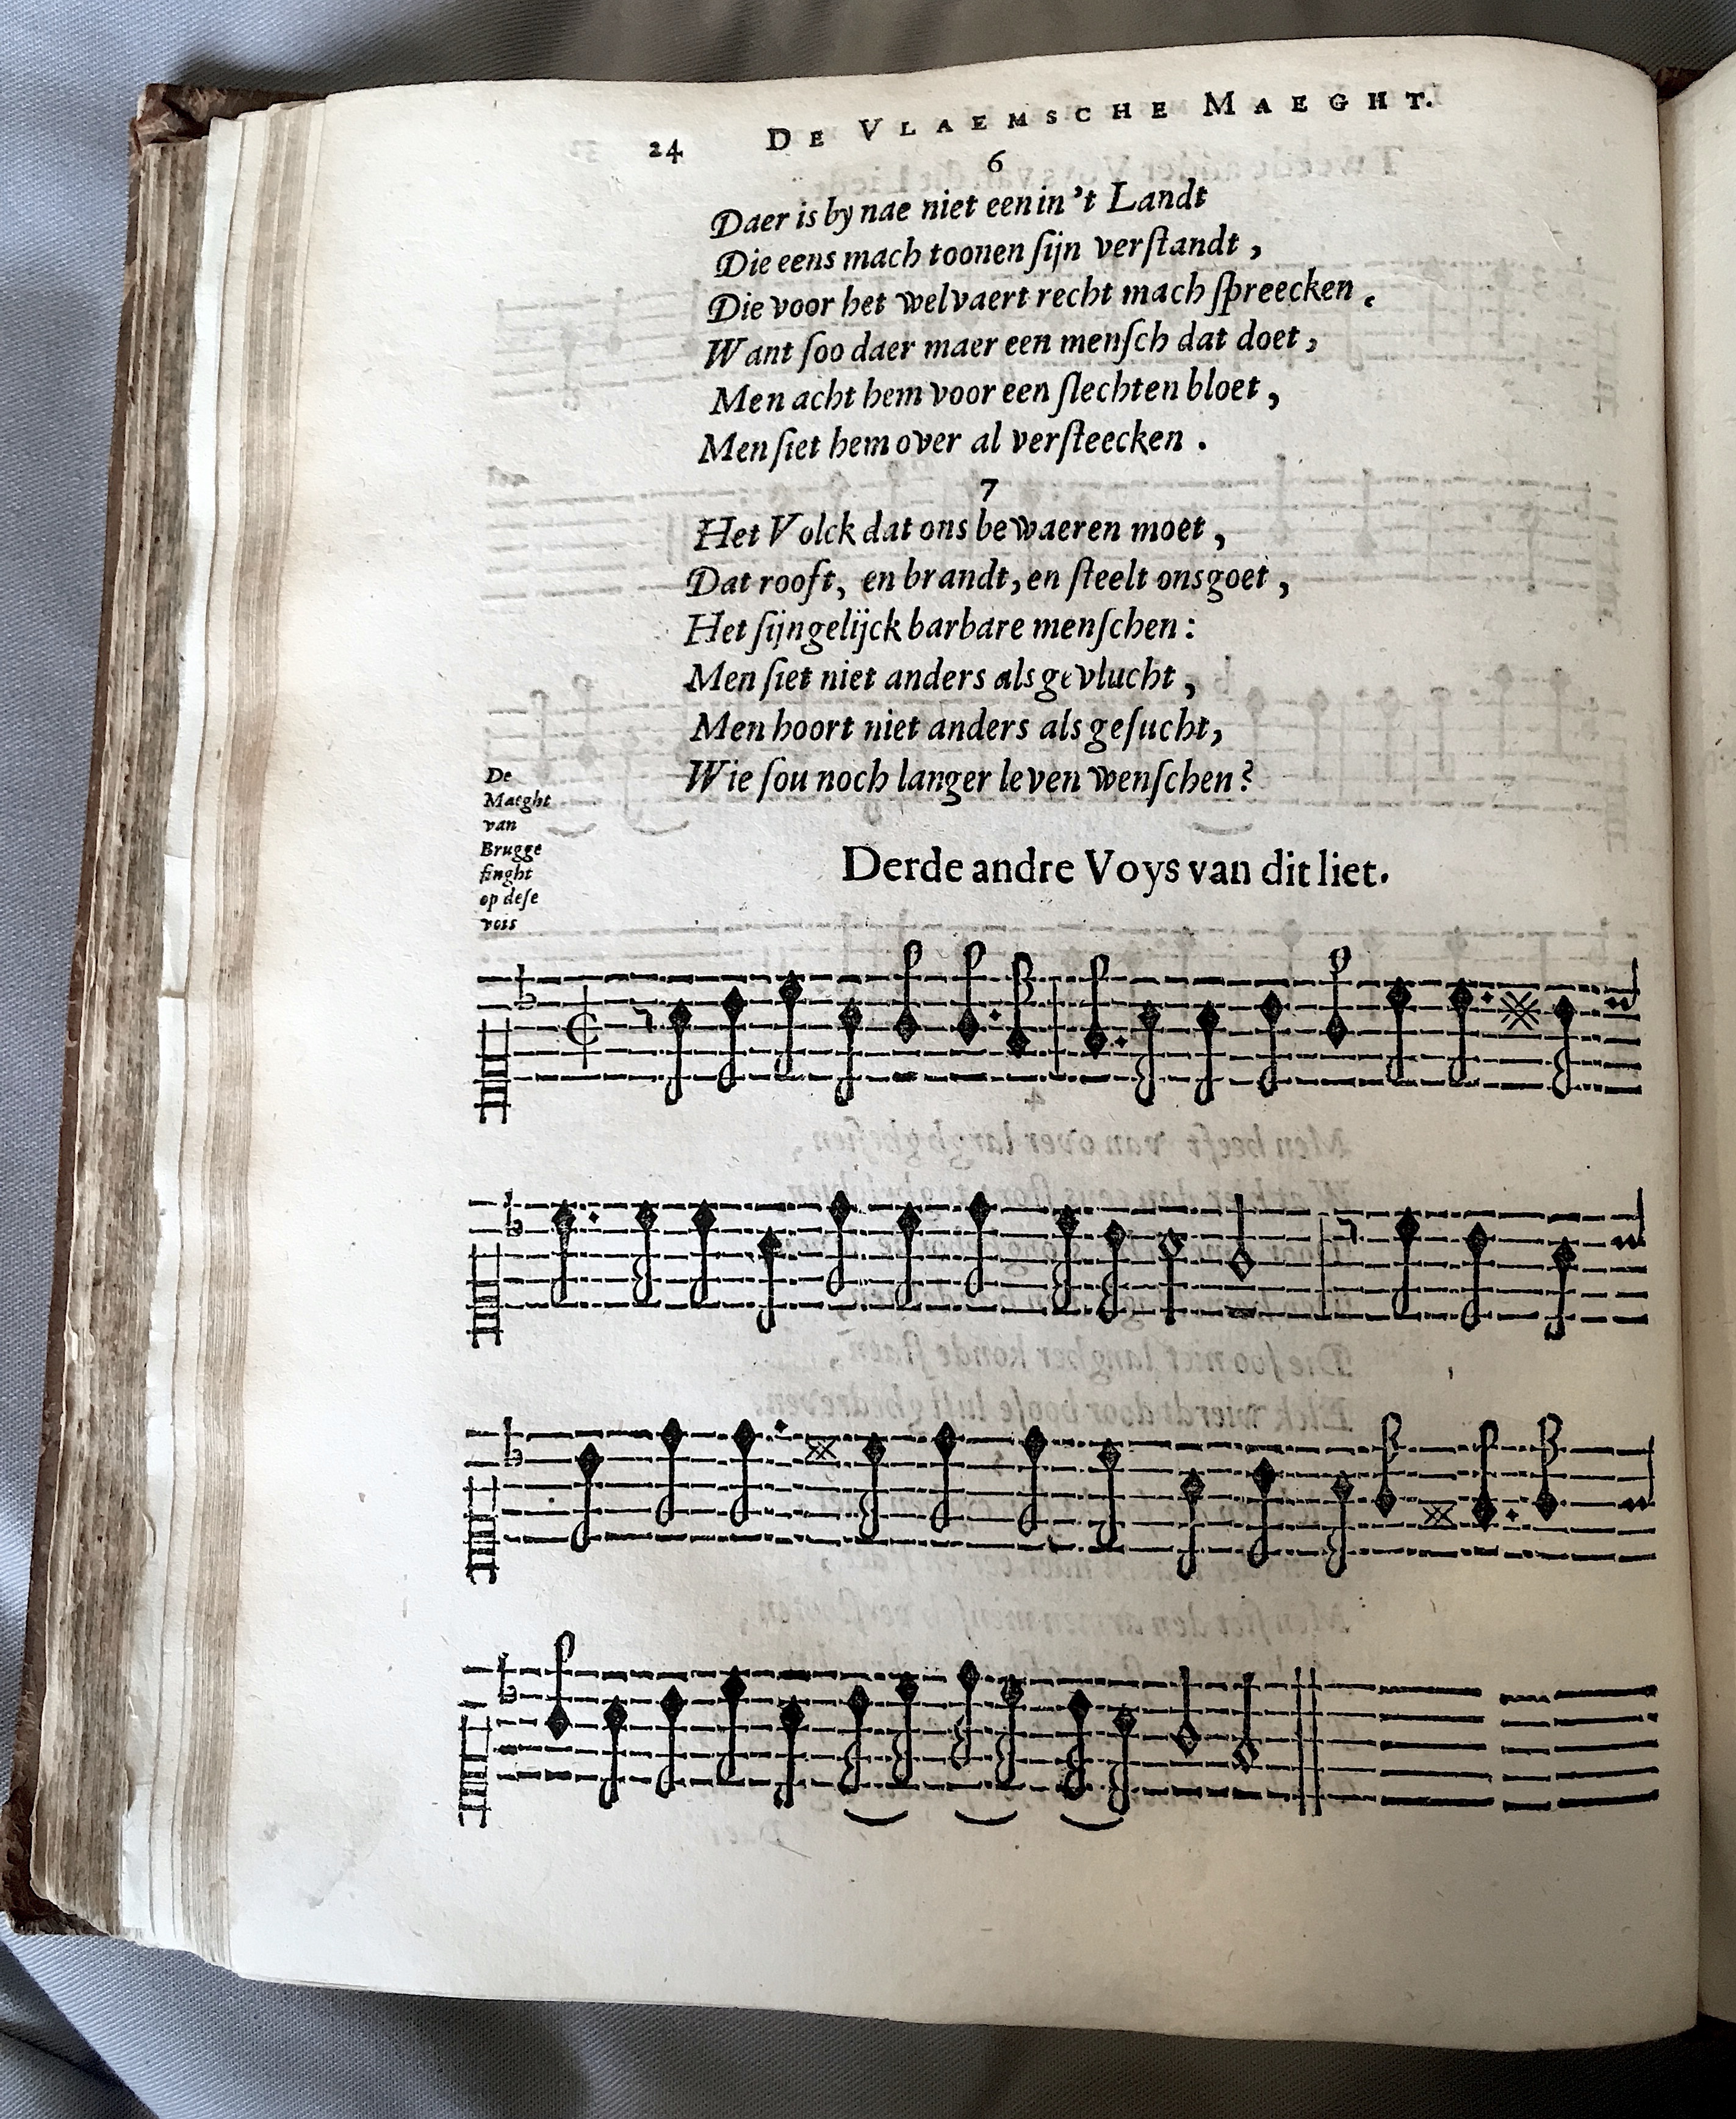 24 DE VLAEMSCHE MAEGHT.
6
Daer is by nae niet een in 't Landt
Die eens mach toonen ſijn verſtandt ,
Die voor het welvaert recht mach ſpreecken .
Want ſoo daer maer een menſch dat doet ,
Men acht hem voor een ſlechten bloet ,
Men ſiet hem over al verſteecken .
7
Het Volck dat ons bewaeren moet ,
Dat rooft, en brandt, en ſteelt ons goet ,
Het ſijn gelijck barbare menſchen :
Men ſiet niet anders als gevlucht ,
Men hoort niet anders als geſucht,
Wie ſou noch langer leven wenſchen ?
De
Maeght
van
Brugge
ſinght
op deſe
vois
Derde andre Voys van dit liet.